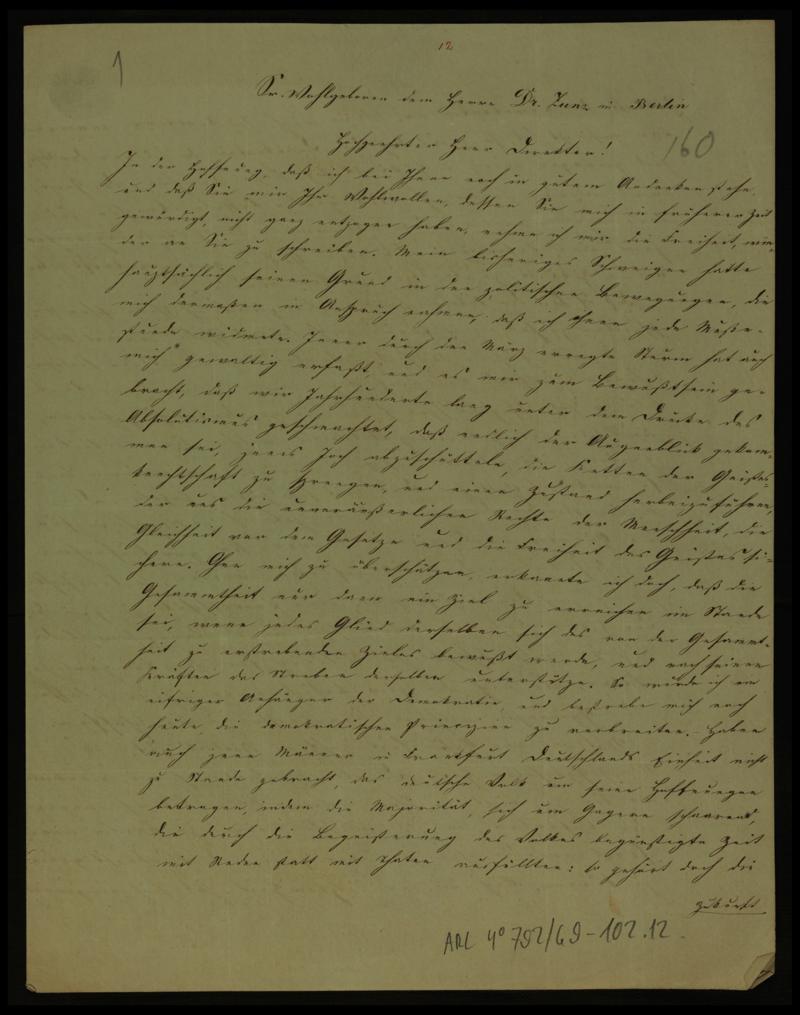 12
1
Sr. Wohlgeboren dem Herrn Dr. Zunz in Berlin
160
Hochgeehrter Herr Direktor!
In der Hoffnung, daß ich bei Ihnen noch in gutem Andenken stehe,
und daß Sie mir Ihr Wohlwollen, dessen Sie mich in früherer Zeit
gewürdigt, nicht ganz entzogen haben, nehme ich mir die Freiheit, wie-
der an Sie zu schreiben. Mein bisheriges Schweigen hatte
hauptsächlich seinen Grund in den politischen Bewegungen, die
mich dermaßen in Anspruch nahmen, daß ich ihnen jede Muße-
stunde widmete. Jener durch den März erregte Sturm hat auch
mich gewaltig erfaßt, und es mir zum Bewußtsein ge-
bracht, daß wir Jahrhunderte lang unter dem Drucke des
Absolutismus geschmachtet, daß endlich der Augenblick gekom-
men sei, jenes Joch abzuschütteln, die Ketten der Geistes-
knechtschaft zu sprengen, und einen Zustand herbeizuführen,
der uns die unveräußerlichen Rechte der Menschheit, die
Gleichheit vor dem Gesetze und die Freiheit des Geistes si-
chere. Ohne mich zu überschätzen, erkannte ich doch, daß die
Gesammtheit nur dann ein Ziel zu erreichen im Stande
sei, wenn jedes Glied derselben sich des von der Gesammt-
heit zu erstrebenden Zieles bewußt werde, und nach seinen
Kräften das Streben derselben unterstütze. So wurde ich ein
eifriger Anhänger der Demokratie, und bestrebe mich noch
heute, die demokratischen Prinzipien zu verbreiten. Haben
auch jene Männer in Frankfurt Deutschlands Einheit nicht
zu Stande gebracht, das deutsche Volk um seine Hoffnungen
betrogen, indem die Majorität, sich um Gagern schaarend,
die durch die Begeisterung des Volkes begünstigte Zeit
mit Reden statt mit Thaten ausfüllten: so gehört doch die
Zukunft
ARC 4° 792/G9-102.12